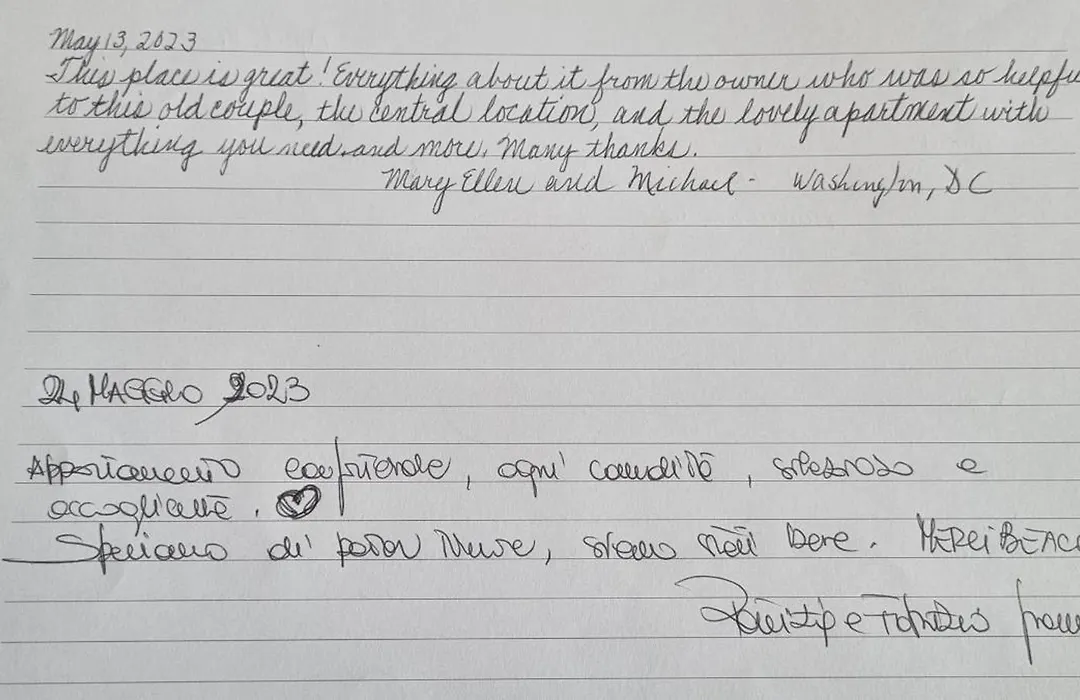 May 13, 2023
This place is great! Everything about it from the owner who was so helpfu
to this old couple, the central location, and the lovely apartment with
everything you need and more. Many thanks.
Mary Ellen and Michael - Washington, DC
24 MAGGIO 2023
Appartamento confortevole, ogni comodità, silenzioso e
accogliente.
Speriamo di poter tornare, siamo stati bene. MERCI BEAC